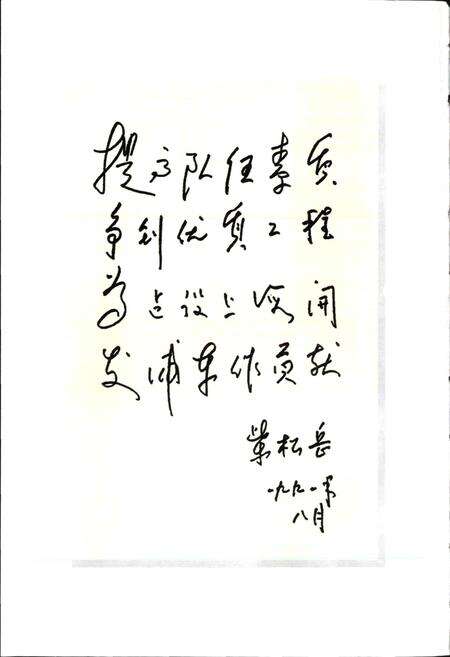 提高队伍素质
争创优质工程
为建设上海开
发浦东作贡献
叶松岳
一九九一年
八月